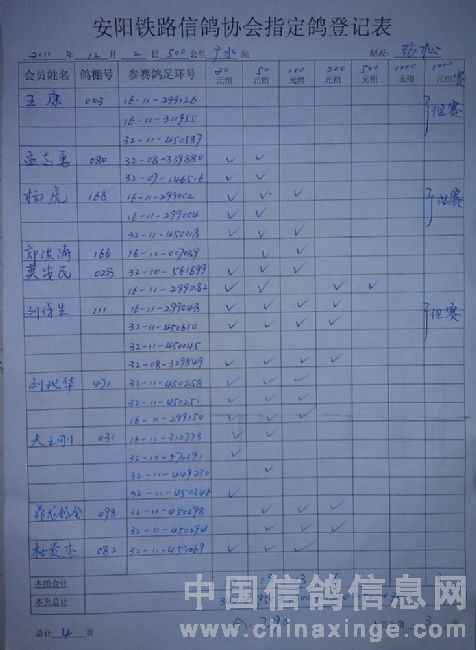 安阳铁路信鸽协会指定鸽登记表
2011 年 12 月 2 日 500 公里 广水 站 制表:
会员姓名 鸽棚号 参赛鸽足环号 30元组 50元组 100元组 200元组 500元组 1000元组 1000元组 赛
王康 003 16-11-299126
16-11-311955 组赛
32-11-450587
孟志勇 080 32-08-339880 ✓ ✓
32-09-146516 ✓ ✓
杨虎 168 16-11-299002 ✓ ✓ ✓
16-11-299004 ✓ ✓ 组赛
32-11-450018 ✓ ✓ ✓
郭洪涛 166 16-10-007039 ✓ ✓
028 32-10-561699 ✓ ✓ ✓
16-11-299282 ✓ ✓ ✓ ✓
111 16-11-299048 ✓ ✓ ✓ ✓
32-11-450610 ✓ ✓ ✓ ✓ 组赛
32-11-450045
32-08-329849 ✓ ✓ ✓ ✓
071 32-11-450258 ✓ ✓ ✓
32-11-450251 ✓ ✓ ✓
16-11-299150 ✓ ✓ ✓
031 16-11-312773 ✓ ✓
32-10-572391 ✓
32-11-449230 ✓
32-11-450346 ✓
098 32-11-450298 ✓ ✓ ✓
32-11-450294 ✓ ✓ ✓
杜贵杰 082 32-11-453069 ✓ ✓ ✓
本组合计
本页总计
总计 4 页 3
中国信鸽信息网
www.chinaxinge.com